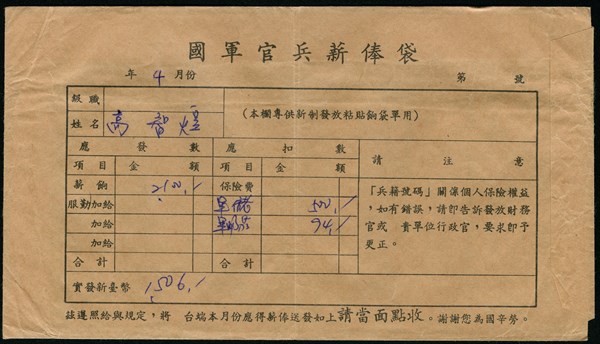 國軍官兵薪俸袋
年 4 月份 第 號
級職
姓名 高智煌 (本欄專供新制發放粘貼餉袋單用)
應發數 應扣數 請注意
項目 金額 項目 金額
薪餉 2100./ 保險費
服勤加給 軍儲 500./
加給 94./
加給
合計 合計
「兵藉號碼」關係個人保險權益，
如有錯誤，請即告訴發放財務
官或 貴單位行政官，要求即予
更正。
實發新臺幣 1506./
茲遵照給與規定，將 台端本月份應得薪俸送發如上請當面點收。謝謝您為國辛勞。